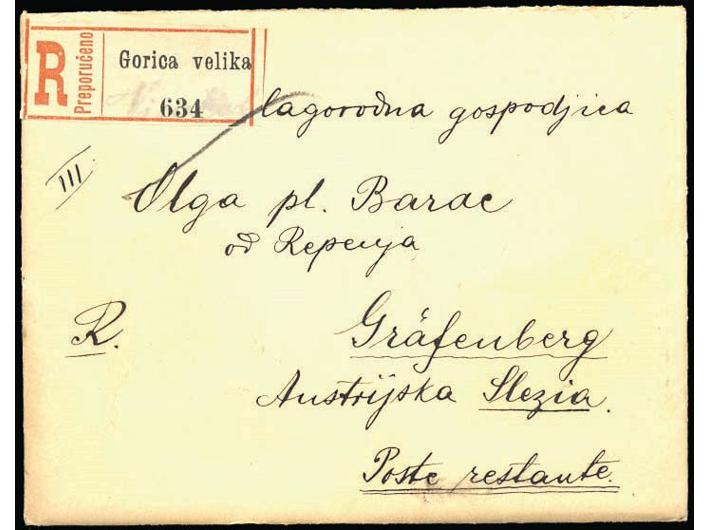 R Preporučeno
Gorica velika
634
lagorodna gospodjica
III
Olga pl. Barac
od Repenja
R.
Gräfenberg
Austrijska Slezia.
Poste restante.